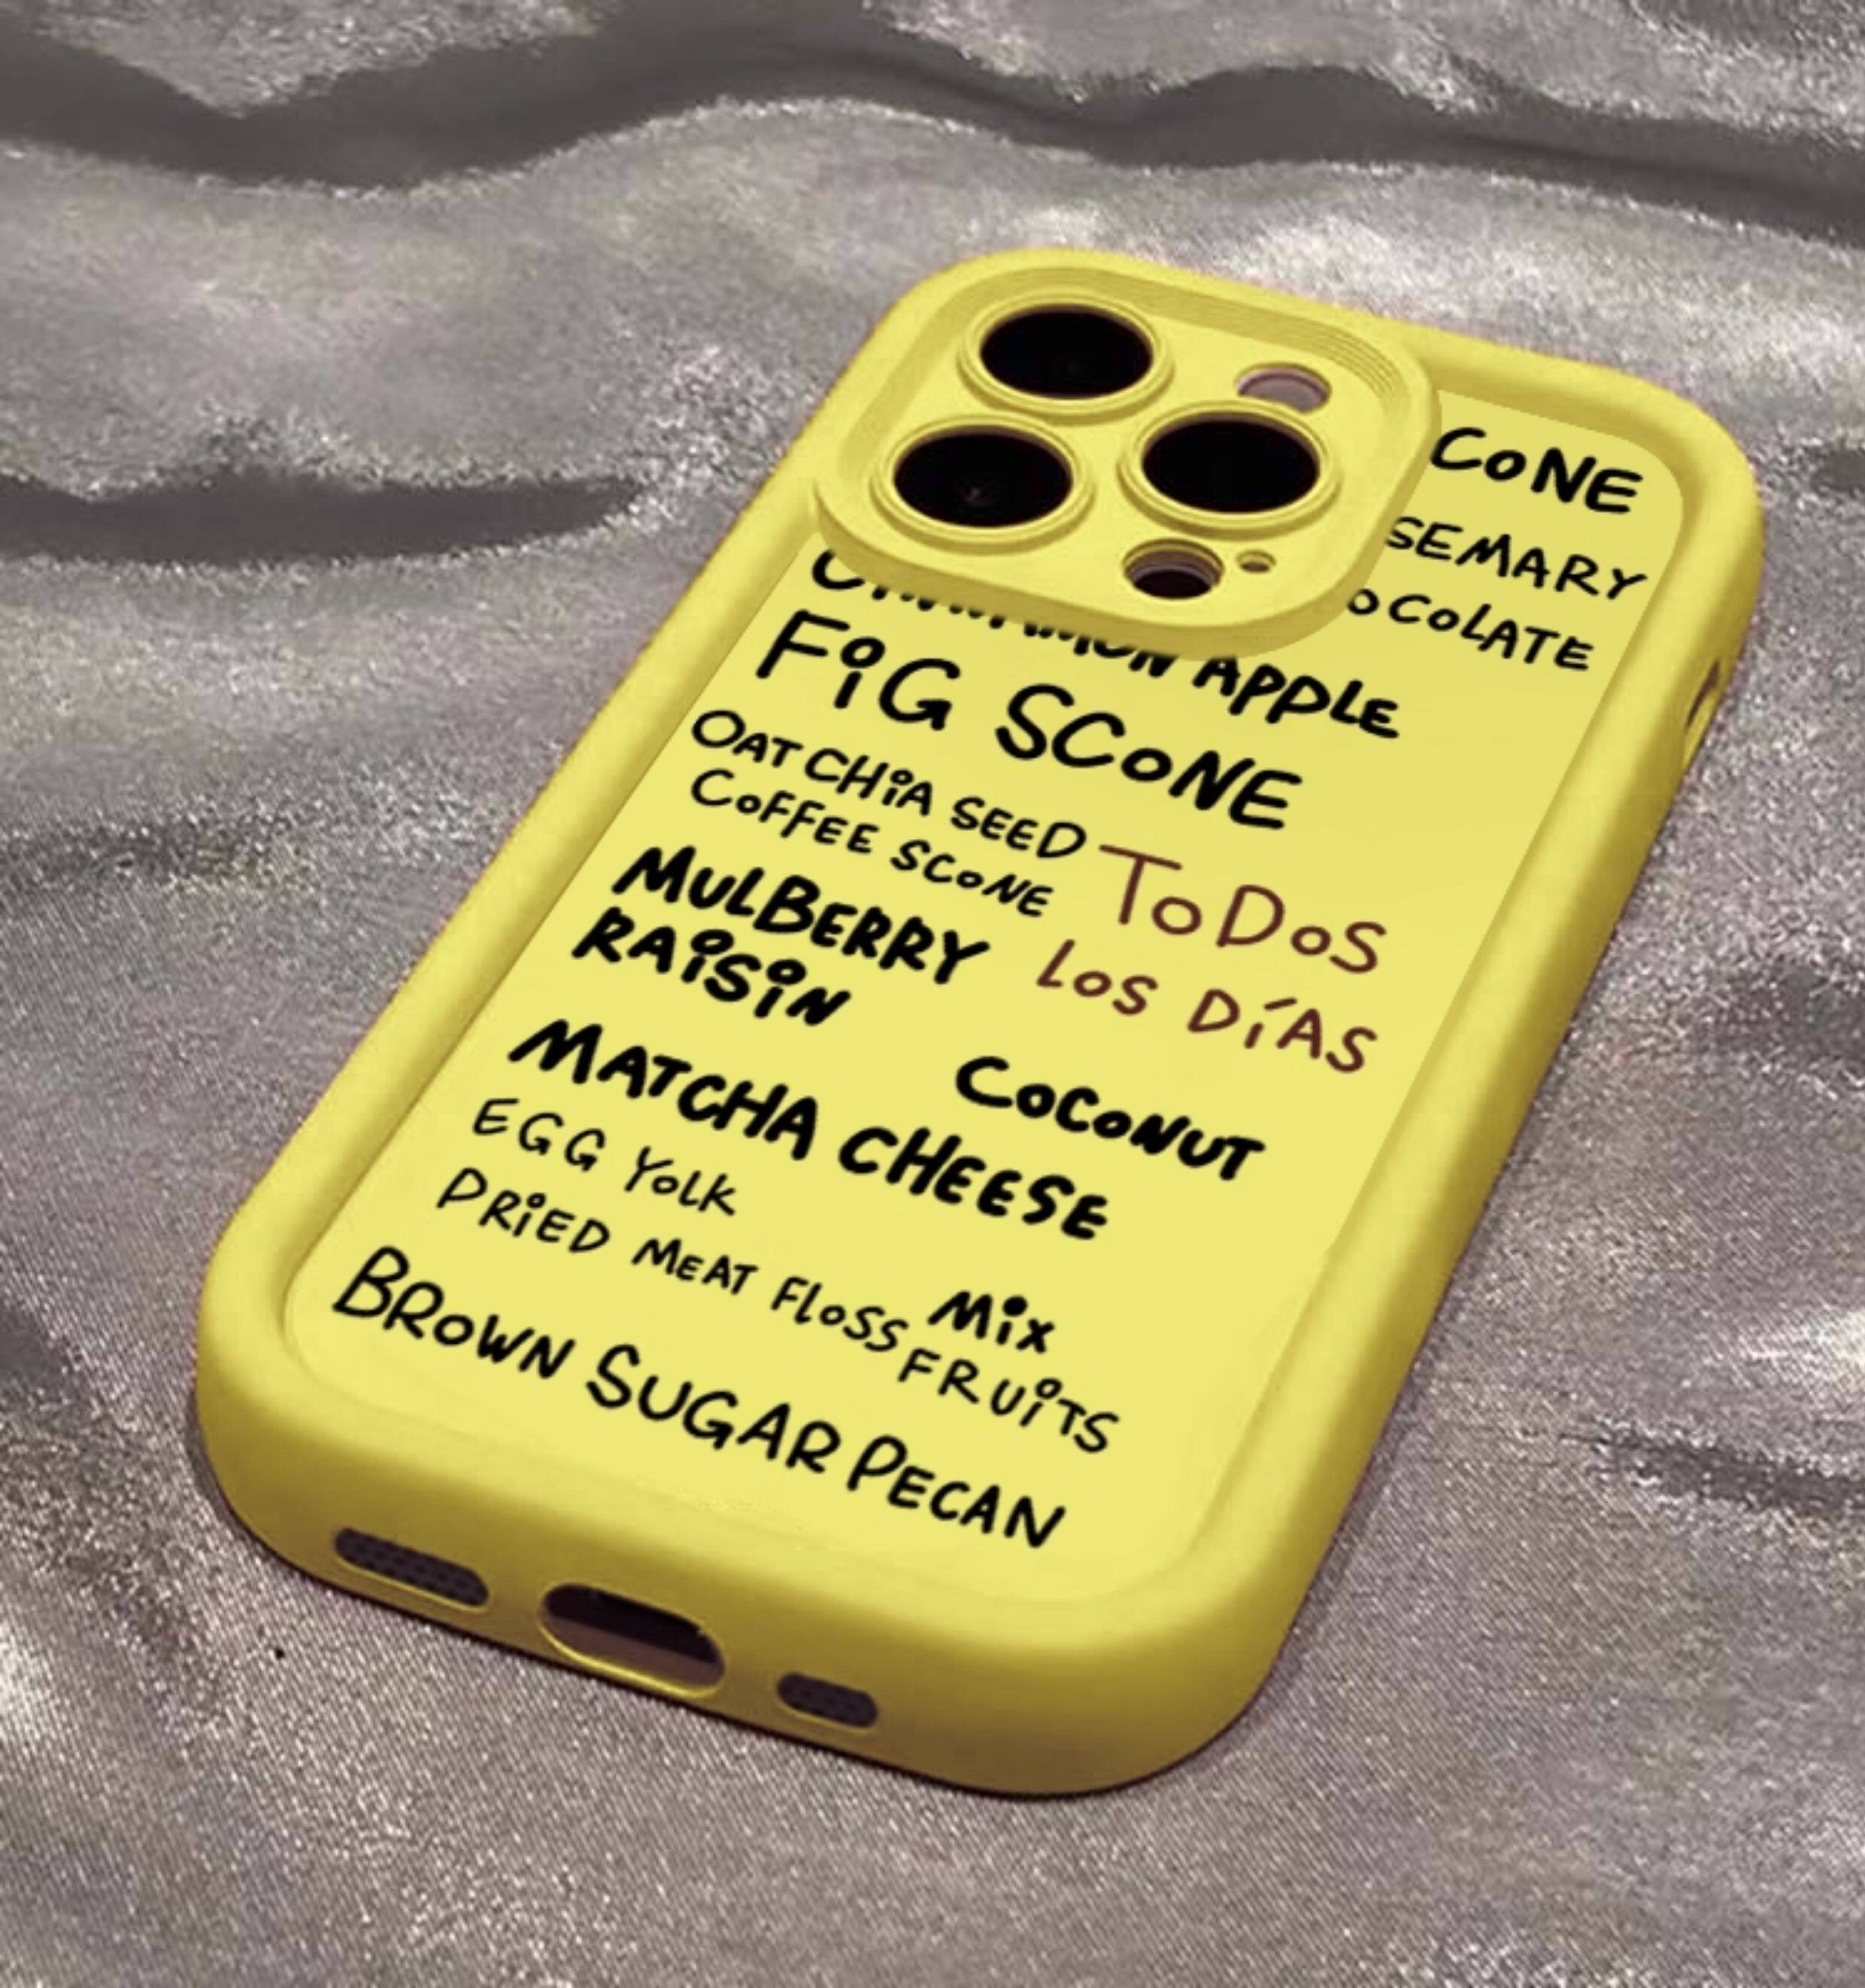 CONE
SEMARY
OCOLATE
APPLE
FiG SCONE
OAT CHiA SEED
COFFEE SCONE
TODOS
LOS DÍAS
MULBERRY
RAiSiN
COCONUT
MATCHA CHEESE
EGG YOLK
DRiED MEAT FLOSS
MiX
FRUiTS
BROWN SUGAR PECAN